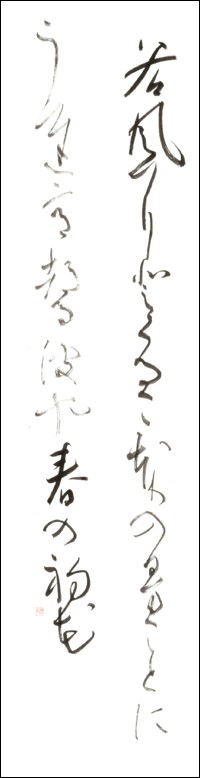 谷風にとくる氷のひまことに
うちいつる波や春の初花